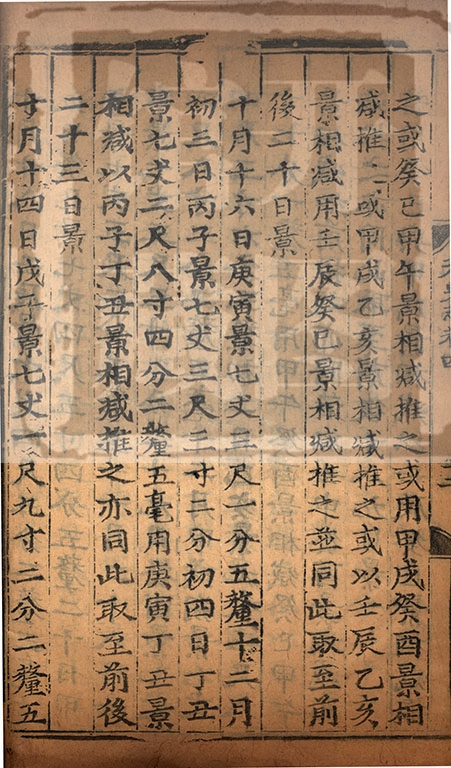 之或癸巳甲午景相減推之或用甲戌癸酉景相
減推之或甲戌乙亥景相減推之或以壬辰乙亥
景相減用壬辰癸巳景相減推之並同此取至前
後二十日景
十月十六日庚寅景七丈三尺一分五釐十二月
初三日丙子景七丈三尺三寸三分初四日丁丑
景七丈二尺八寸四分二釐五毫用庚寅丁丑景
相減以丙子丁丑景相減推之亦同此取至前後
二十三日景
十月十四日戊子景七丈一尺九寸二分二釐五